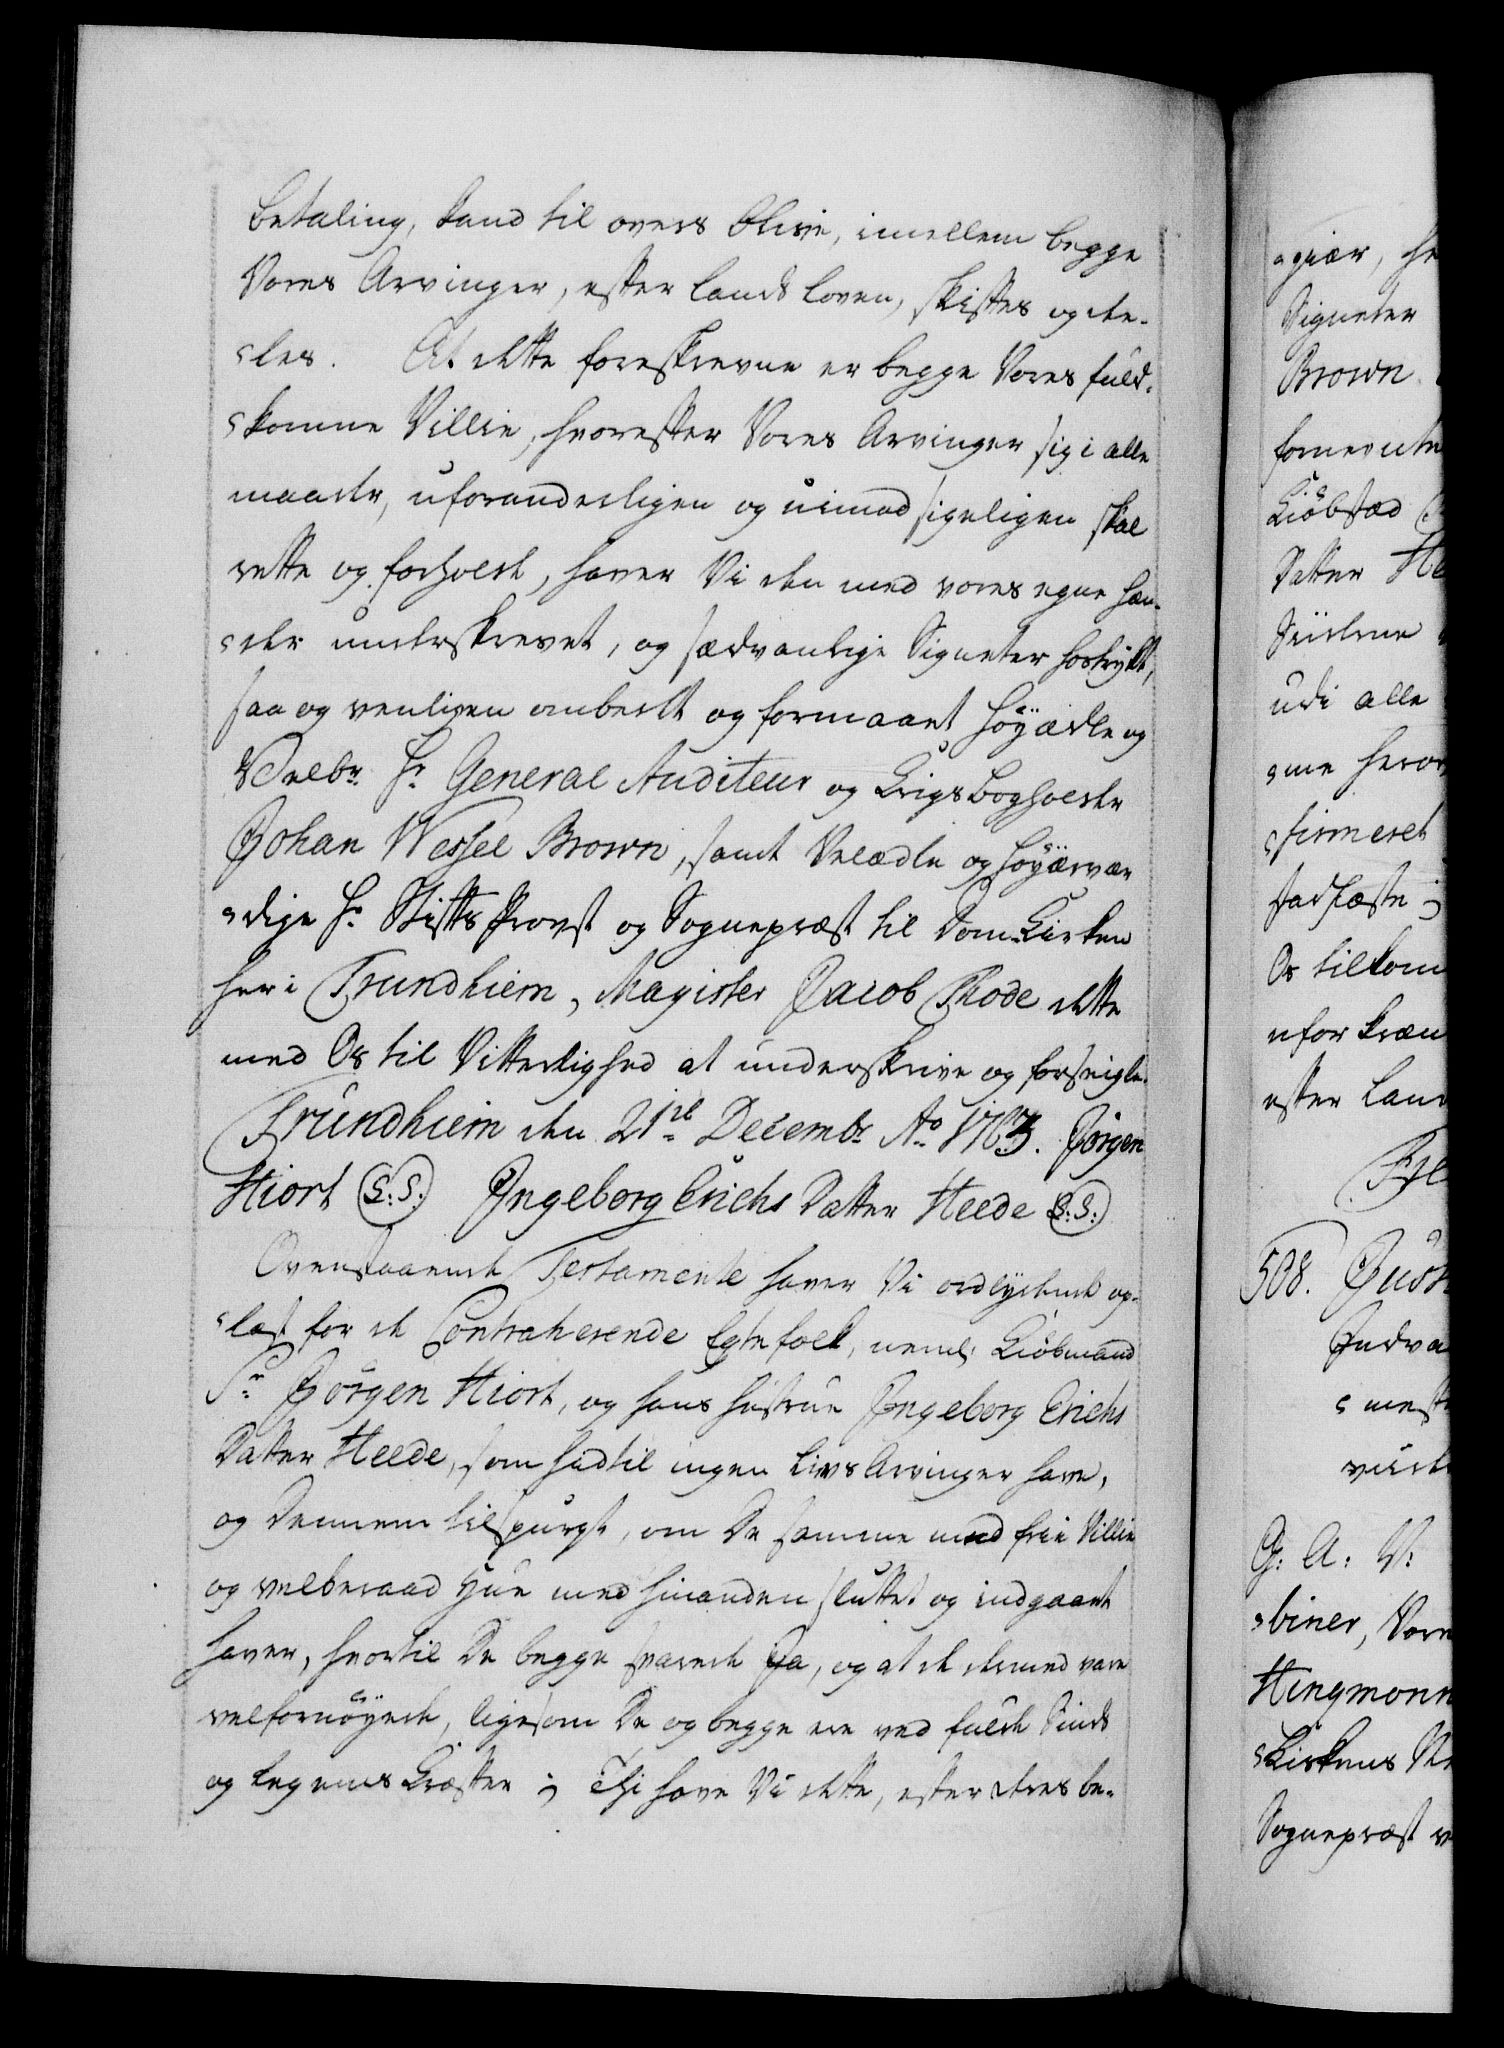 betaling, kand til overs blive, imellem begge
Vores Arvinger, efter Lands Loven, skiftes og de-
les. At dette foreskrevne er begge Vores fuld-
komne Villie, hvorefter Vores Arvinger sig i alle
maader, uforanderligen og uimodsigeligen skal
rette og forholde, haver Vi den med vores egne Hæn-
der underskrevet, og sædvanlige Signeter hostrykt,
saa og venligen ombedt og formaaet Høyædle og
Velbr. Hr. General Auditeur og Krigs Bogholder
Johan Wessel Brown, samt Velædle og Høyærvær
dige Hr. Stifts Provst og Sognepræst til Dom-Kirken
her i Trundhiem, Magister Jacob Rode dette
med Os til Vitterlighed at underskrive og forseigle.
Trundhiem den 21de Decembr. Ao. 1763. Jörgen
Hiort (L.S.) Ingeborg Erichs Datter Heede (L.S.)
Ovenstaaende Testamente haver Vi ordlydende op-
læst for de Contraherende Egtefolk, neml. Kiöbmand
Sr. Jörgen Hiort, og hans Hustrue Ingeborg Erichs
Datter Heede, som hidtil ingen Livs Arvinger have,
og Dennem tilspurgt, om De samme med frie Villie
og velberaad Hue med hinanden sluttet og indgaaet
haver, hvortil De begge svarede Ja, og at de dermed vare
velfornöyede, ligesom De og begge ere ved fulde Sinds
og Legems Kræfter; Thi have Vi dette, efter deres be-
giær, he
Signeter
Brown
fornevnte
Kiöbsted
Datter He
udi alle
me herov
firmeret
stadfæste;
Os tilkom
ufor kræn
efter Lan
508. Just
Indva
mest
G: A: V:
biner, Vore
Hingmonn
Kirkens Me
Sognepræst v